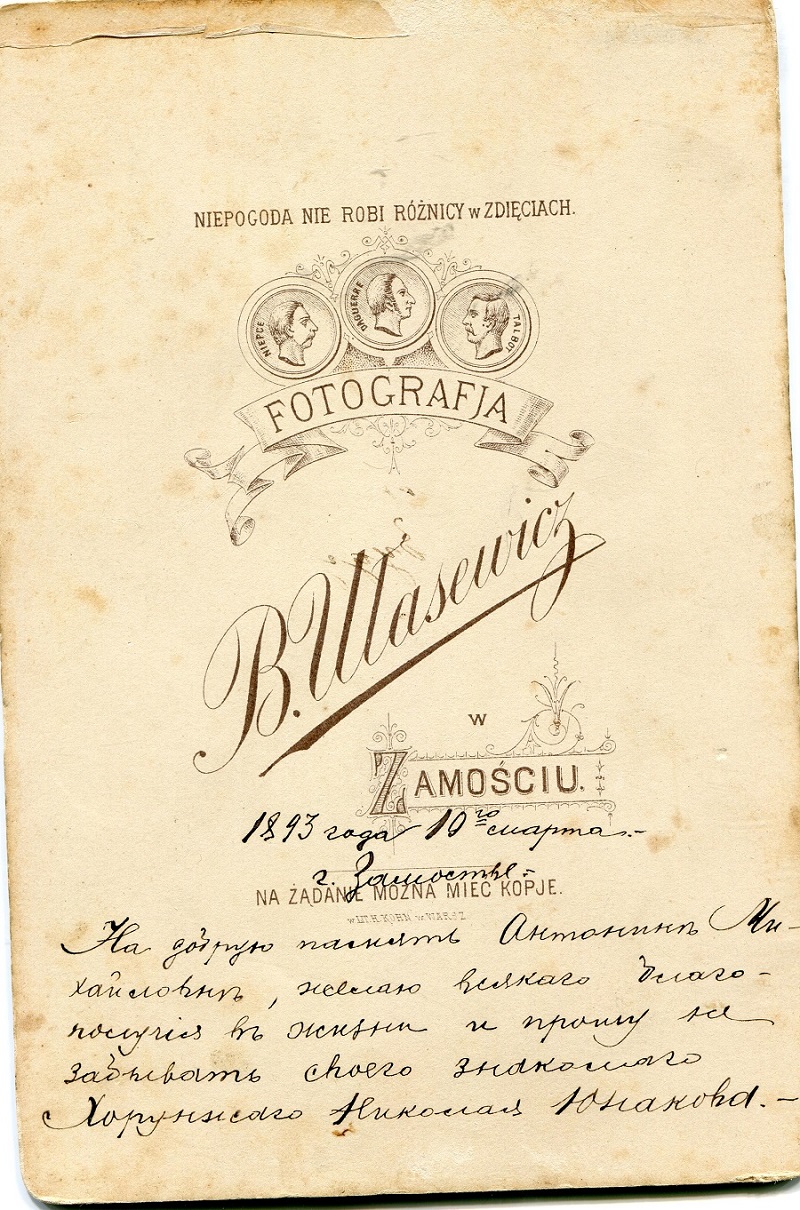 NIEPOGODA NIE ROBI RÓŻNICY w ZDIĘCIACH.
NIEPCE
DAGUERRE
TALBOT
FOTOGRAFJA
B. Wasewicz
W
ZAMOŚCIU.
1893 года 10го марта.-
г. Замостье.-
NA ŻĄDANIE MOŻNA MIEĆ KOPJE.
w LIT. H. KOHN w WARSZ
На добрую память Антонинѣ Ми-
хайловнѣ, желаю всякаго благо-
получія въ жизни и прошу не
забывать своего знакомаго
Хорунжаго Николая Юнакова.-